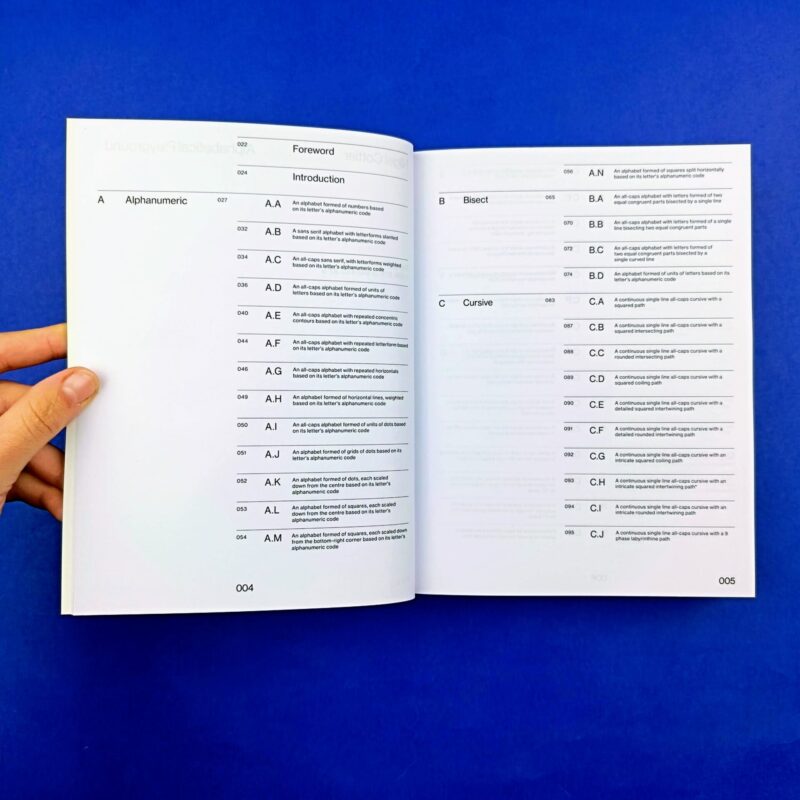 022
Foreword
024
Introduction
A Alphanumeric 027
A.A An alphabet formed of numbers based
on its letter's alphanumeric code
032 A.B A sans serif alphabet with letterforms slanted
based on its letter's alphanumeric code
034 A.C An all-caps sans serif, with letterforms weighted
based on its letter's alphanumeric code
036 A.D An all-caps alphabet formed of units of
letters based on its letter's alphanumeric code
040 A.E An all-caps alphabet with repeated concentric
contours based on its letter's alphanumeric code
044 A.F An all-caps alphabet with repeated letterforms based
on its letter's alphanumeric code
046 A.G An all-caps alphabet with repeated horizontals
based on its letter's alphanumeric code
049 A.H An alphabet formed of horizontal lines, weighted
based on its letter's alphanumeric code
050 A.I An all-caps alphabet formed of units of dots based
on its letter's alphanumeric code
051 A.J An alphabet formed of grids of dots based on its
letter's alphanumeric code
052 A.K An alphabet formed of dots, each scaled
down from the centre based on its letter's
alphanumeric code
053 A.L An alphabet formed of squares, each scaled
down from the centre based on its letter's
alphanumeric code
054 A.M An alphabet formed of squares, each scaled down
from the bottom-right corner based on its letter's
alphanumeric code
004
056 A.N An alphabet formed of squares split horizontally
based on its letter's alphanumeric code
B Bisect 065
B.A An all-caps alphabet with letters formed of two
equal congruent parts bisected by a single
line
070 B.B An all-caps alphabet with letters formed of a single
line bisecting two equal congruent parts
072 B.C An all-caps alphabet with letters formed of
two equal congruent parts bisected by a
single curved line
074 B.D An alphabet formed of units of letters based on its
letter's alphanumeric code
C Cursive 083
C.A A continuous single line all-caps cursive with a
squared path
087 C.B A continuous single line all-caps cursive with a
squared intersecting path
088 C.C A continuous single line all-caps cursive with a
rounded intersecting path
089 C.D A continuous single line all-caps cursive with a
squared coiling path
090 C.E A continuous single line all-caps cursive with a
detailed squared intertwining path
091 C.F A continuous single line all-caps cursive with a
detailed rounded intertwining path
092 C.G A continuous single line all-caps cursive with an
intricate squared coiling path
093 C.H A continuous single line all-caps cursive with an
intricate squared intertwining path"
094 C.I A continuous single line all-caps cursive with an
intricate rounded intertwining path
095 C.J A continuous single line all-caps cursive with a 9
phase labyrinthine path
005